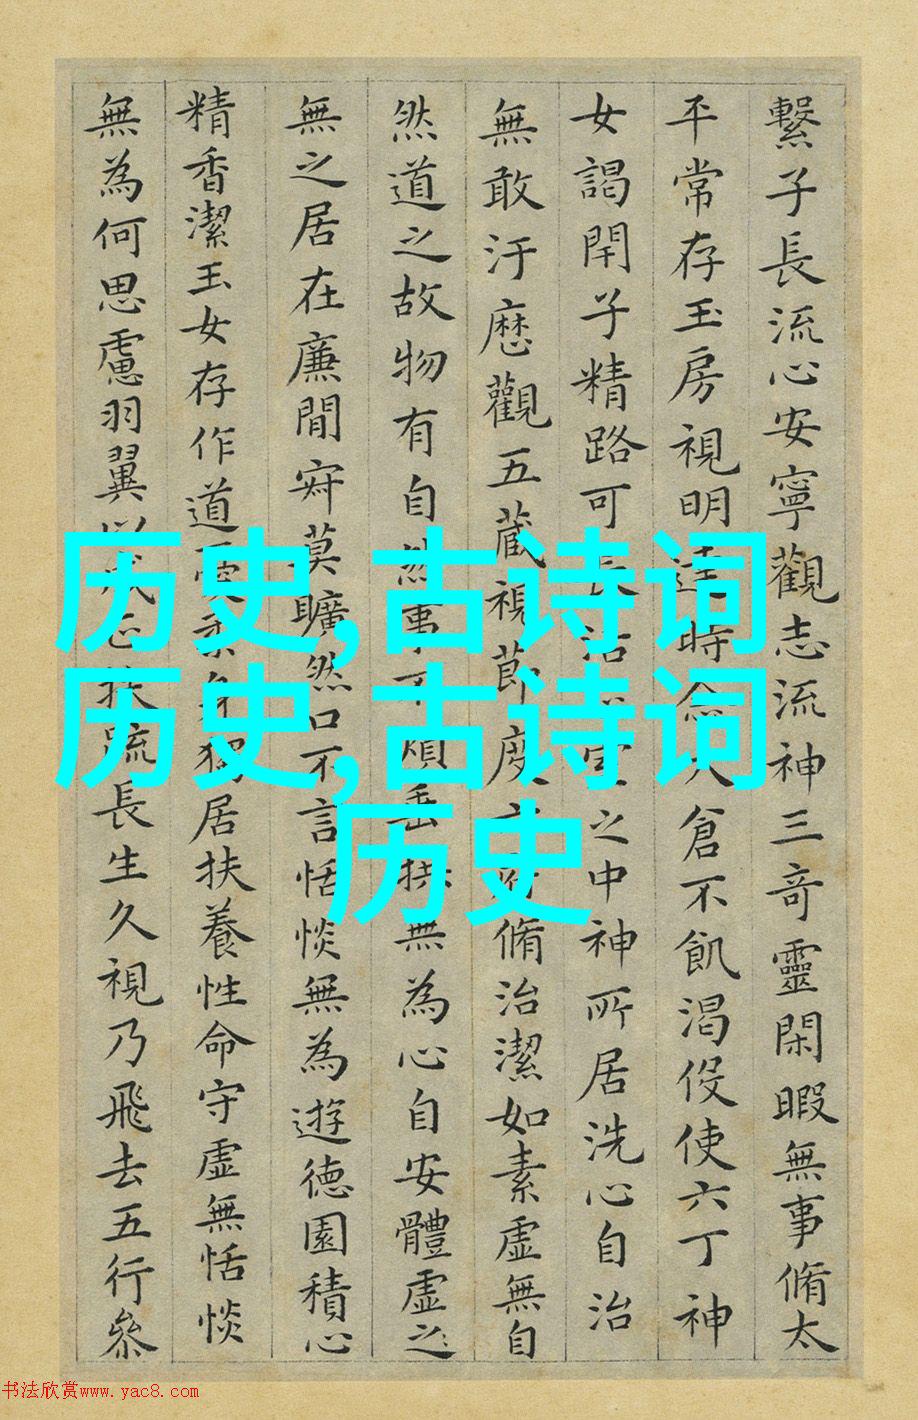 繫子長流心安寧觀志流神三竒靈閑暇無事脩太
平常存玉房視明達時念大倉不飢渴伇使六丁神
女謁閇子精路可長活正室之中神所居洗心自治
無敢汙歷觀五藏視節度六府脩治潔如素虛無自
然道之故物有自然事不煩垂拱無為心自安體虛之
無之居在廉間寂莫曠然口不言恬惔無為遊德園積心
精香潔玉女存作道憂柔身獨居扶養性命守虛無恬惔
無為何思慮羽翼以成正扶疏長生久視乃飛去五行叅
历史,古诗词
历史,古诗词
历史
书法欣赏www.yac8.com